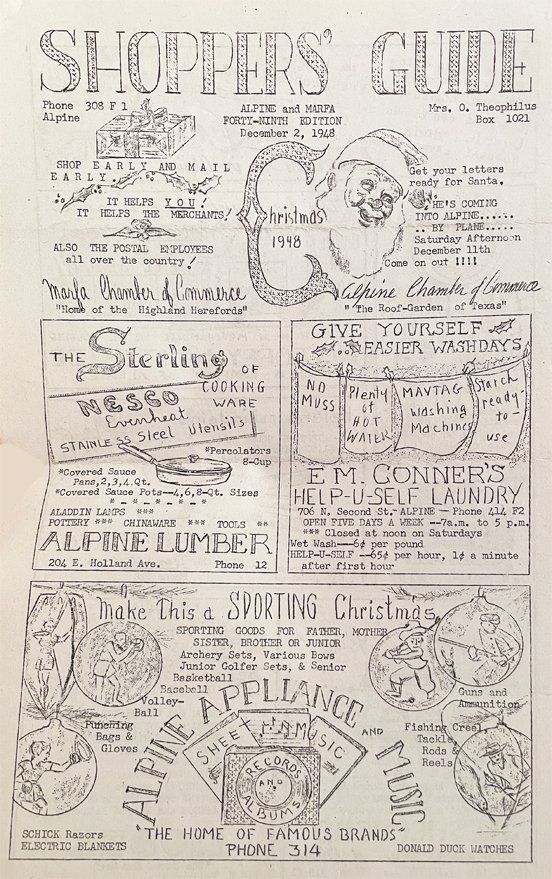 SHOPPERS' GUIDE
Phone 308 F 1
Alpine
ALPINE and MARFA
FORTY-NINTH EDITION
December 2, 1948
Mrs. O. Theophilus
Box 1021
SHOP EARLY AND MAIL
EARLY.
IT HELPS YOU!
IT HELPS THE MERCHANTS!
ALSO THE POSTAL EMPLOYEES
all over the country!
Marfa Chamber of Commerce
"Home of the Highland Herefords"
Christmas
1948
Get your letters
ready for Santa.
HE'S COMING
INTO ALPINE......
.. BY PLANE.....
Saturday Afternoon
December 11th
Come on out !!!!
Alpine Chamber of Commerce
"The Roof-Garden of Texas"
THE Sterling OF
COOKING
WARE
NESCO
Evenheat
STAINLESS Steel Utensils
*Percolators
8-Cup
*Covered Sauce
Pans,2,3,4.Qt.
*Covered Sauce Pots--4,6,8-Qt. Sizes
*-*-*-*-*-*
ALADDIN LAMPS ***
POTTERY *** CHINAWARE *** TOOLS **
ALPINE LUMBER
204 E. Holland Ave. Phone 12
GIVE YOURSELF
EASIER WASHDAYS
NO
MUSS
Plenty
of
HOT
WATER
MAYTAG
Washing
Machines
Starch
ready-
to-
use
E M. CONNER'S
HELP-U-SELF LAUNDRY
706 N. Second St.- ALPINE - Phone 414 F2
OPEN FIVE DAYS A WEEK --7a.m. to 5 p.m.
*** Closed at noon on Saturdays
Wet Wash---6¢ per pound
HELP-U-SELF --65¢ per hour, 1¢ a minute
after first hour
Make This a SPORTING Christmas
SPORTING GOODS FOR FATHER, MOTHER
SISTER, BROTHER OR JUNIOR
Archery Sets, Various Bows
Junior Golfer Sets, & Senior
Basketball
Baseball
Volley-
Ball
Punching
Bags &
Gloves
Guns and
Ammunition
Fishing Creel
Tackle,
Rods &
Reels
ALPINE APPLIANCE AND MUSIC
SHEET MUSIC
RECORDS
AND
ALBUMS
SCHICK Razors
ELECTRIC BLANKETS
"THE HOME OF FAMOUS BRANDS"
PHONE 314
DONALD DUCK WATCHES